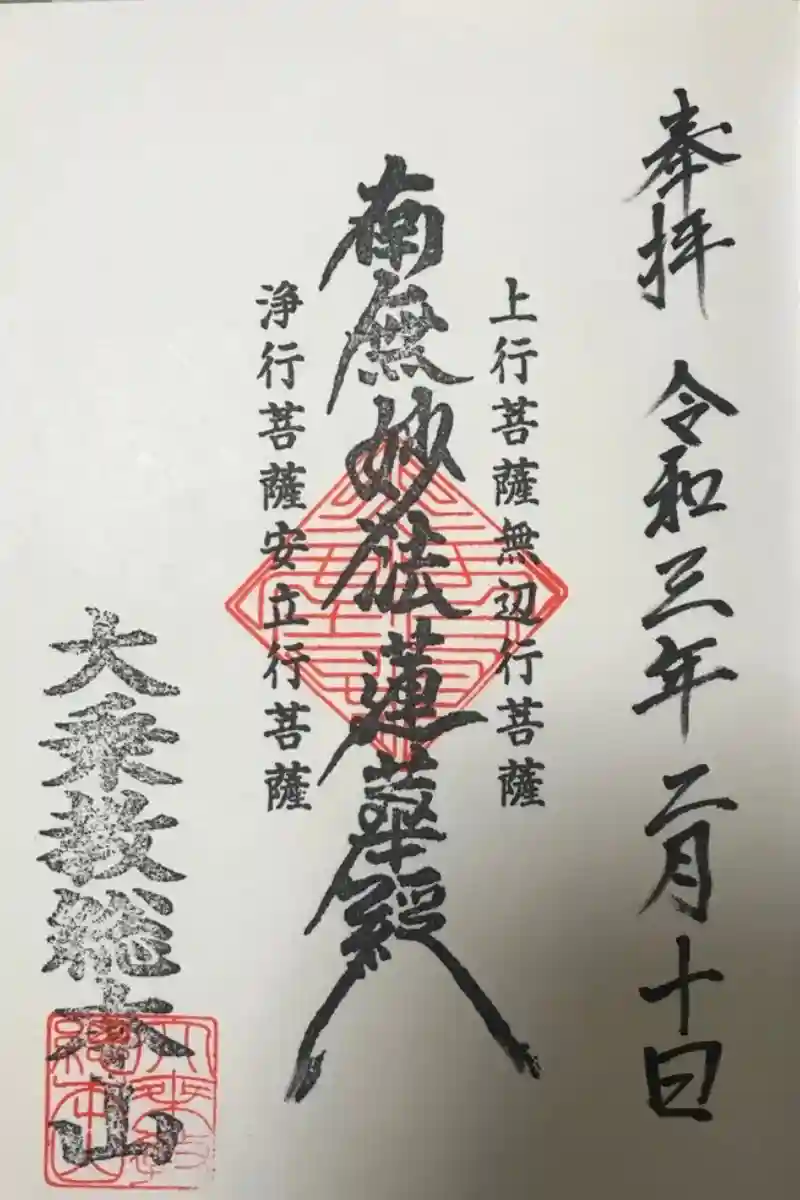 奉拝 令和三年 二月十日
上行菩薩無辺行菩薩
南無妙法蓮華経
浄行菩薩安立行菩薩
大乗教総本山